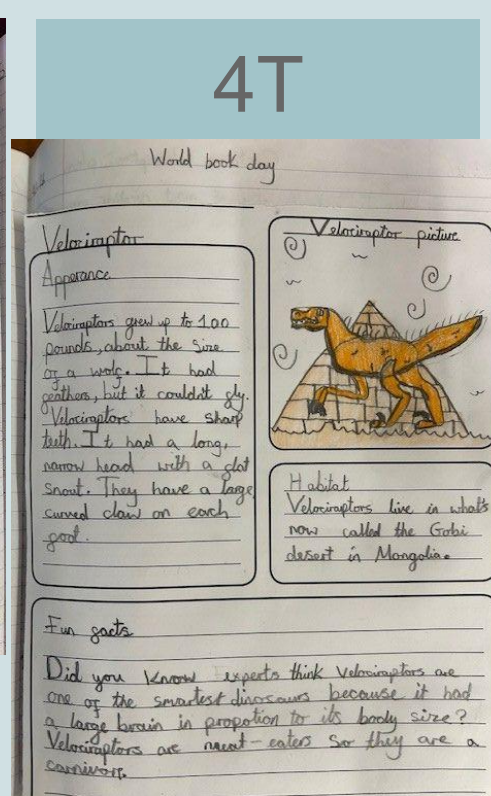 4T
World book day
Velociraptor
Apperance
Velociraptors grew up to 100
pounds, about the size
of a wolf. It had
feathers, but it couldn't fly.
Velociraptors have sharp
teeth. It had a long,
narrow head with a flat
snout. They have a large
curved claw on each
foot.
Velociraptor picture
Habitat
Velociraptors live in what's
now called the Gobi
desert in Mongolia.
Fun facts
Did you know experts think Velociraptors are
one of the smartest dinosaurs because it had
a large brain in propotion to its body size?
Velociraptors are meat-eaters so they are a
carnivore.